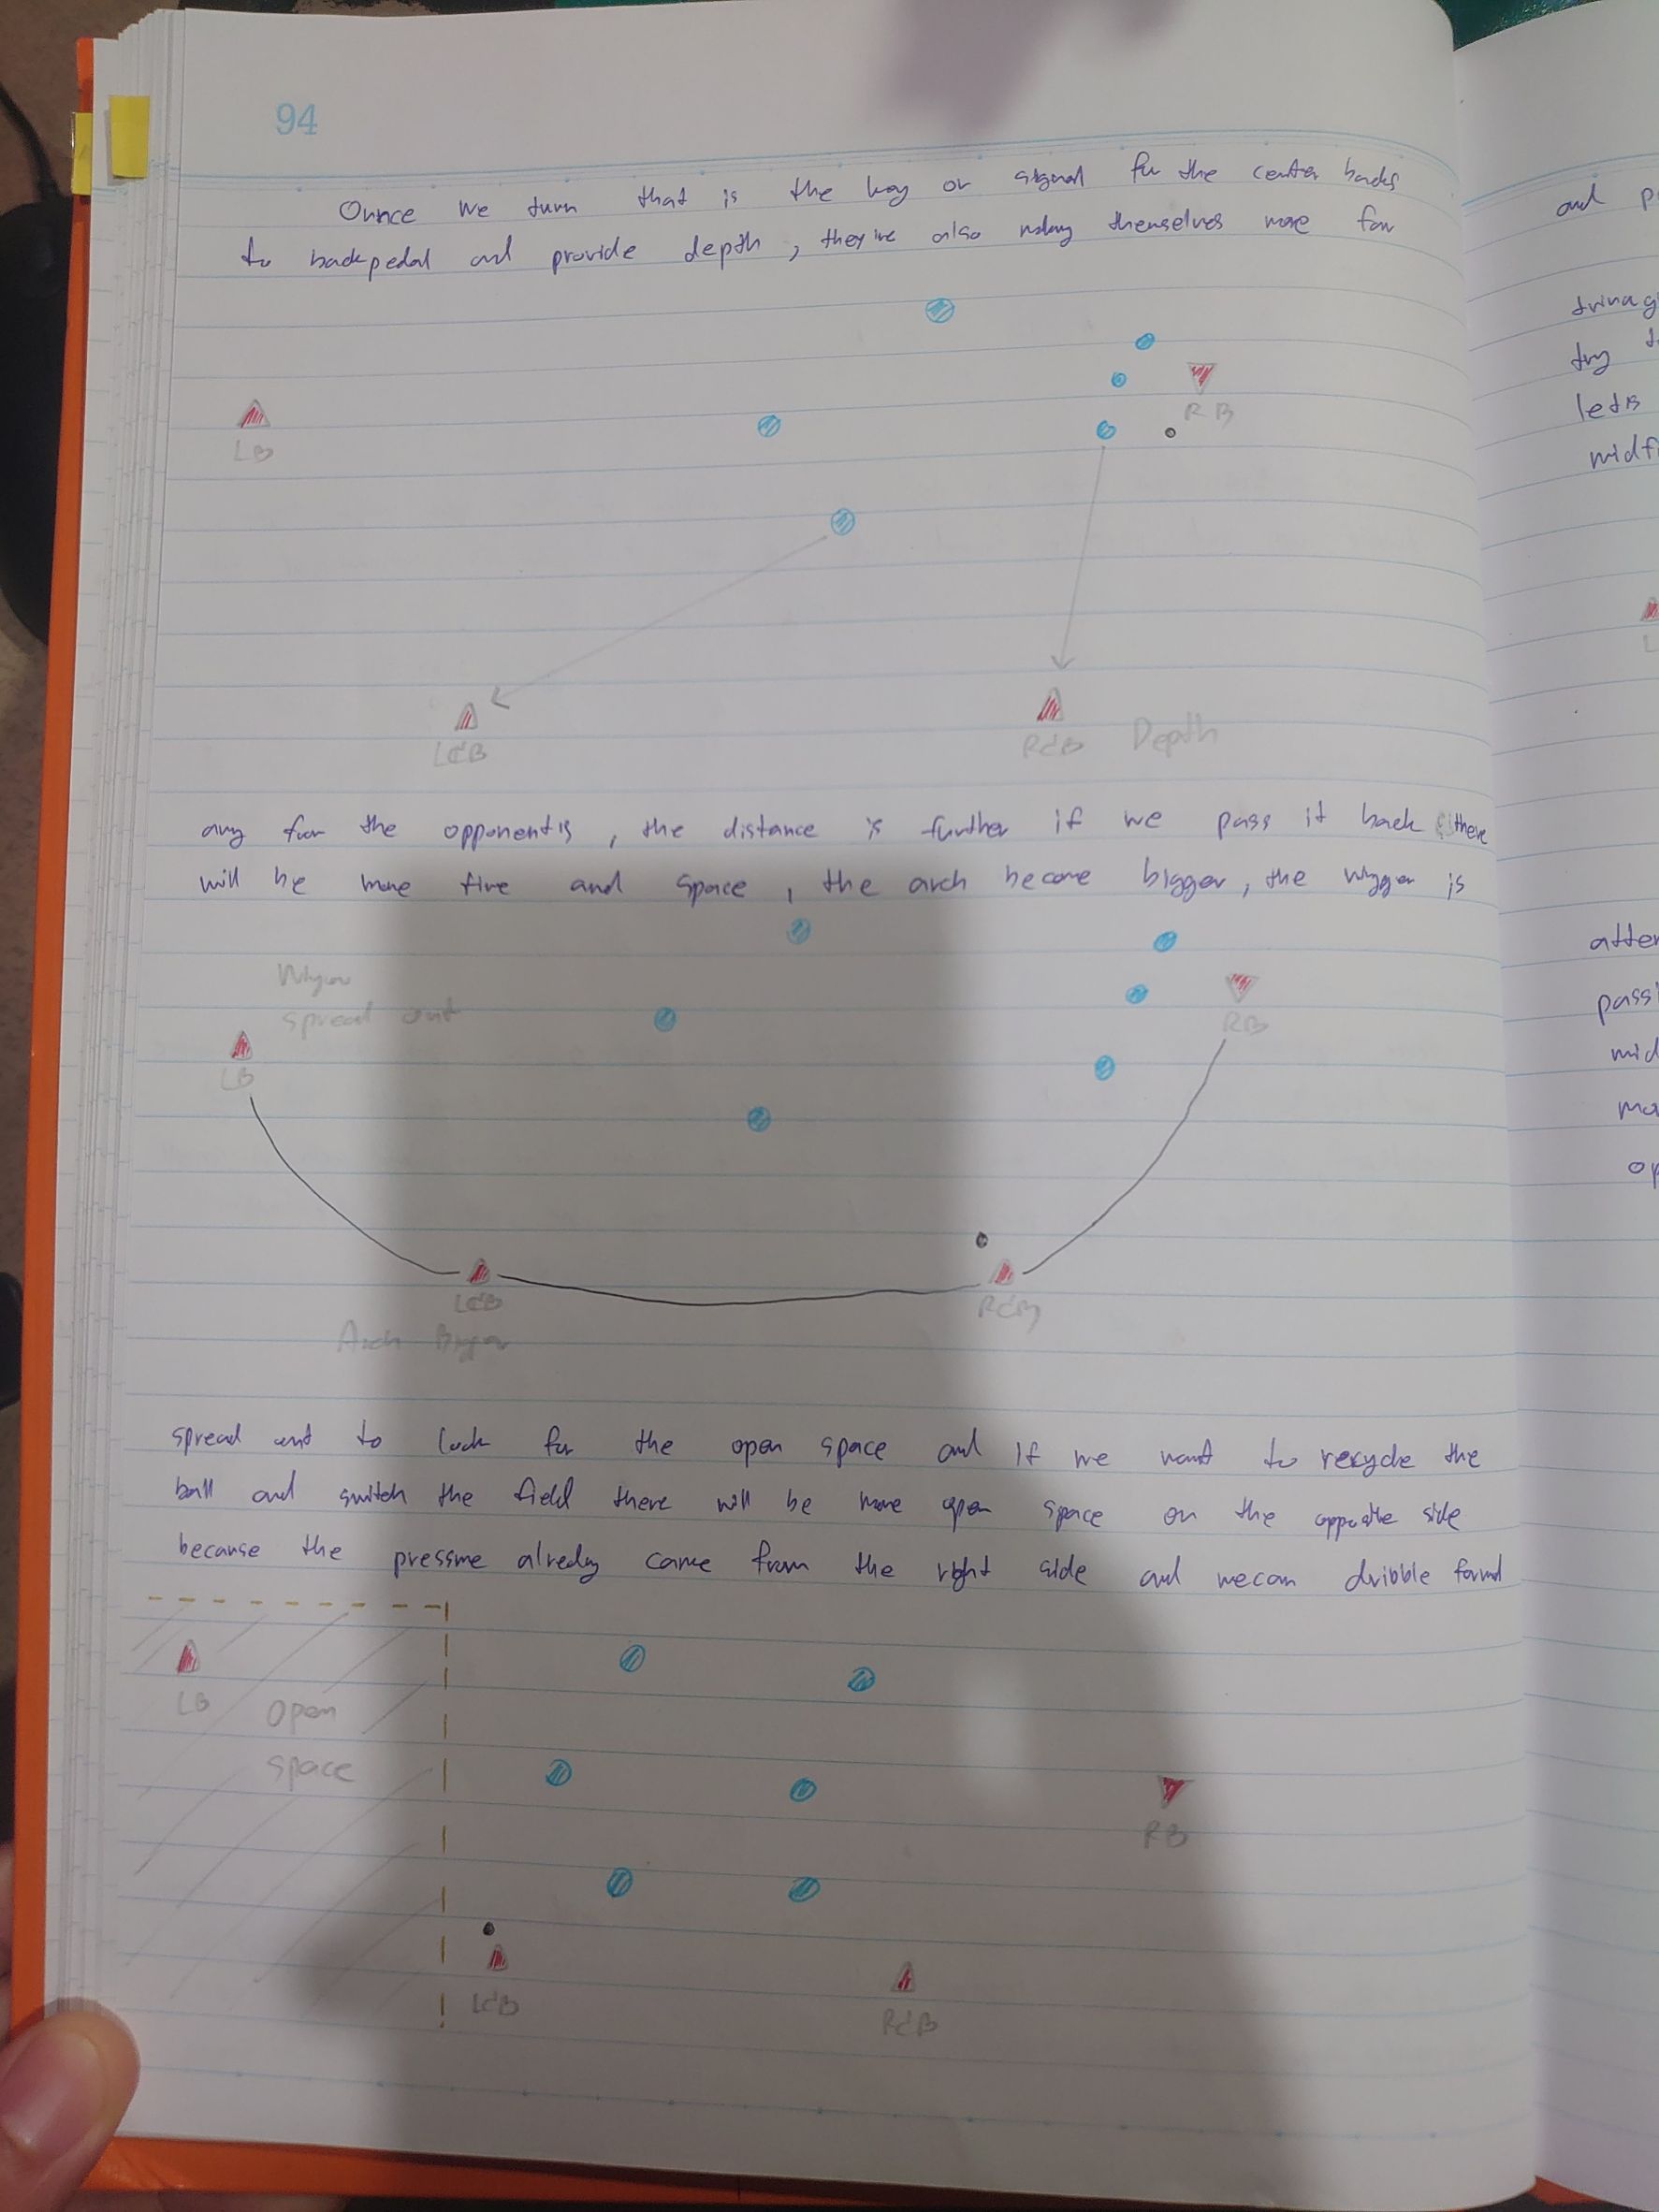 94
Ounce we turn that is the key or signal for the center backs
to backpedal and provide depth, they're also making themselves more far
LB
RB
LCB
RCB Depth
away from the opponents, the distance is further if we pass it back there
will be more time and space, the arch become bigger, the winger is
Winger
spread out
LB
RB
LCB
RCB
Arch Bigger
spread out to look for the open space and if we want to recycle the
ball and switch the field there will be more open space on the opposite side
because the pressure already came from the right side and we can dribble forward
LB
Open
space
RB
LCB
RCB
and
try
midf
atter
pass
mid